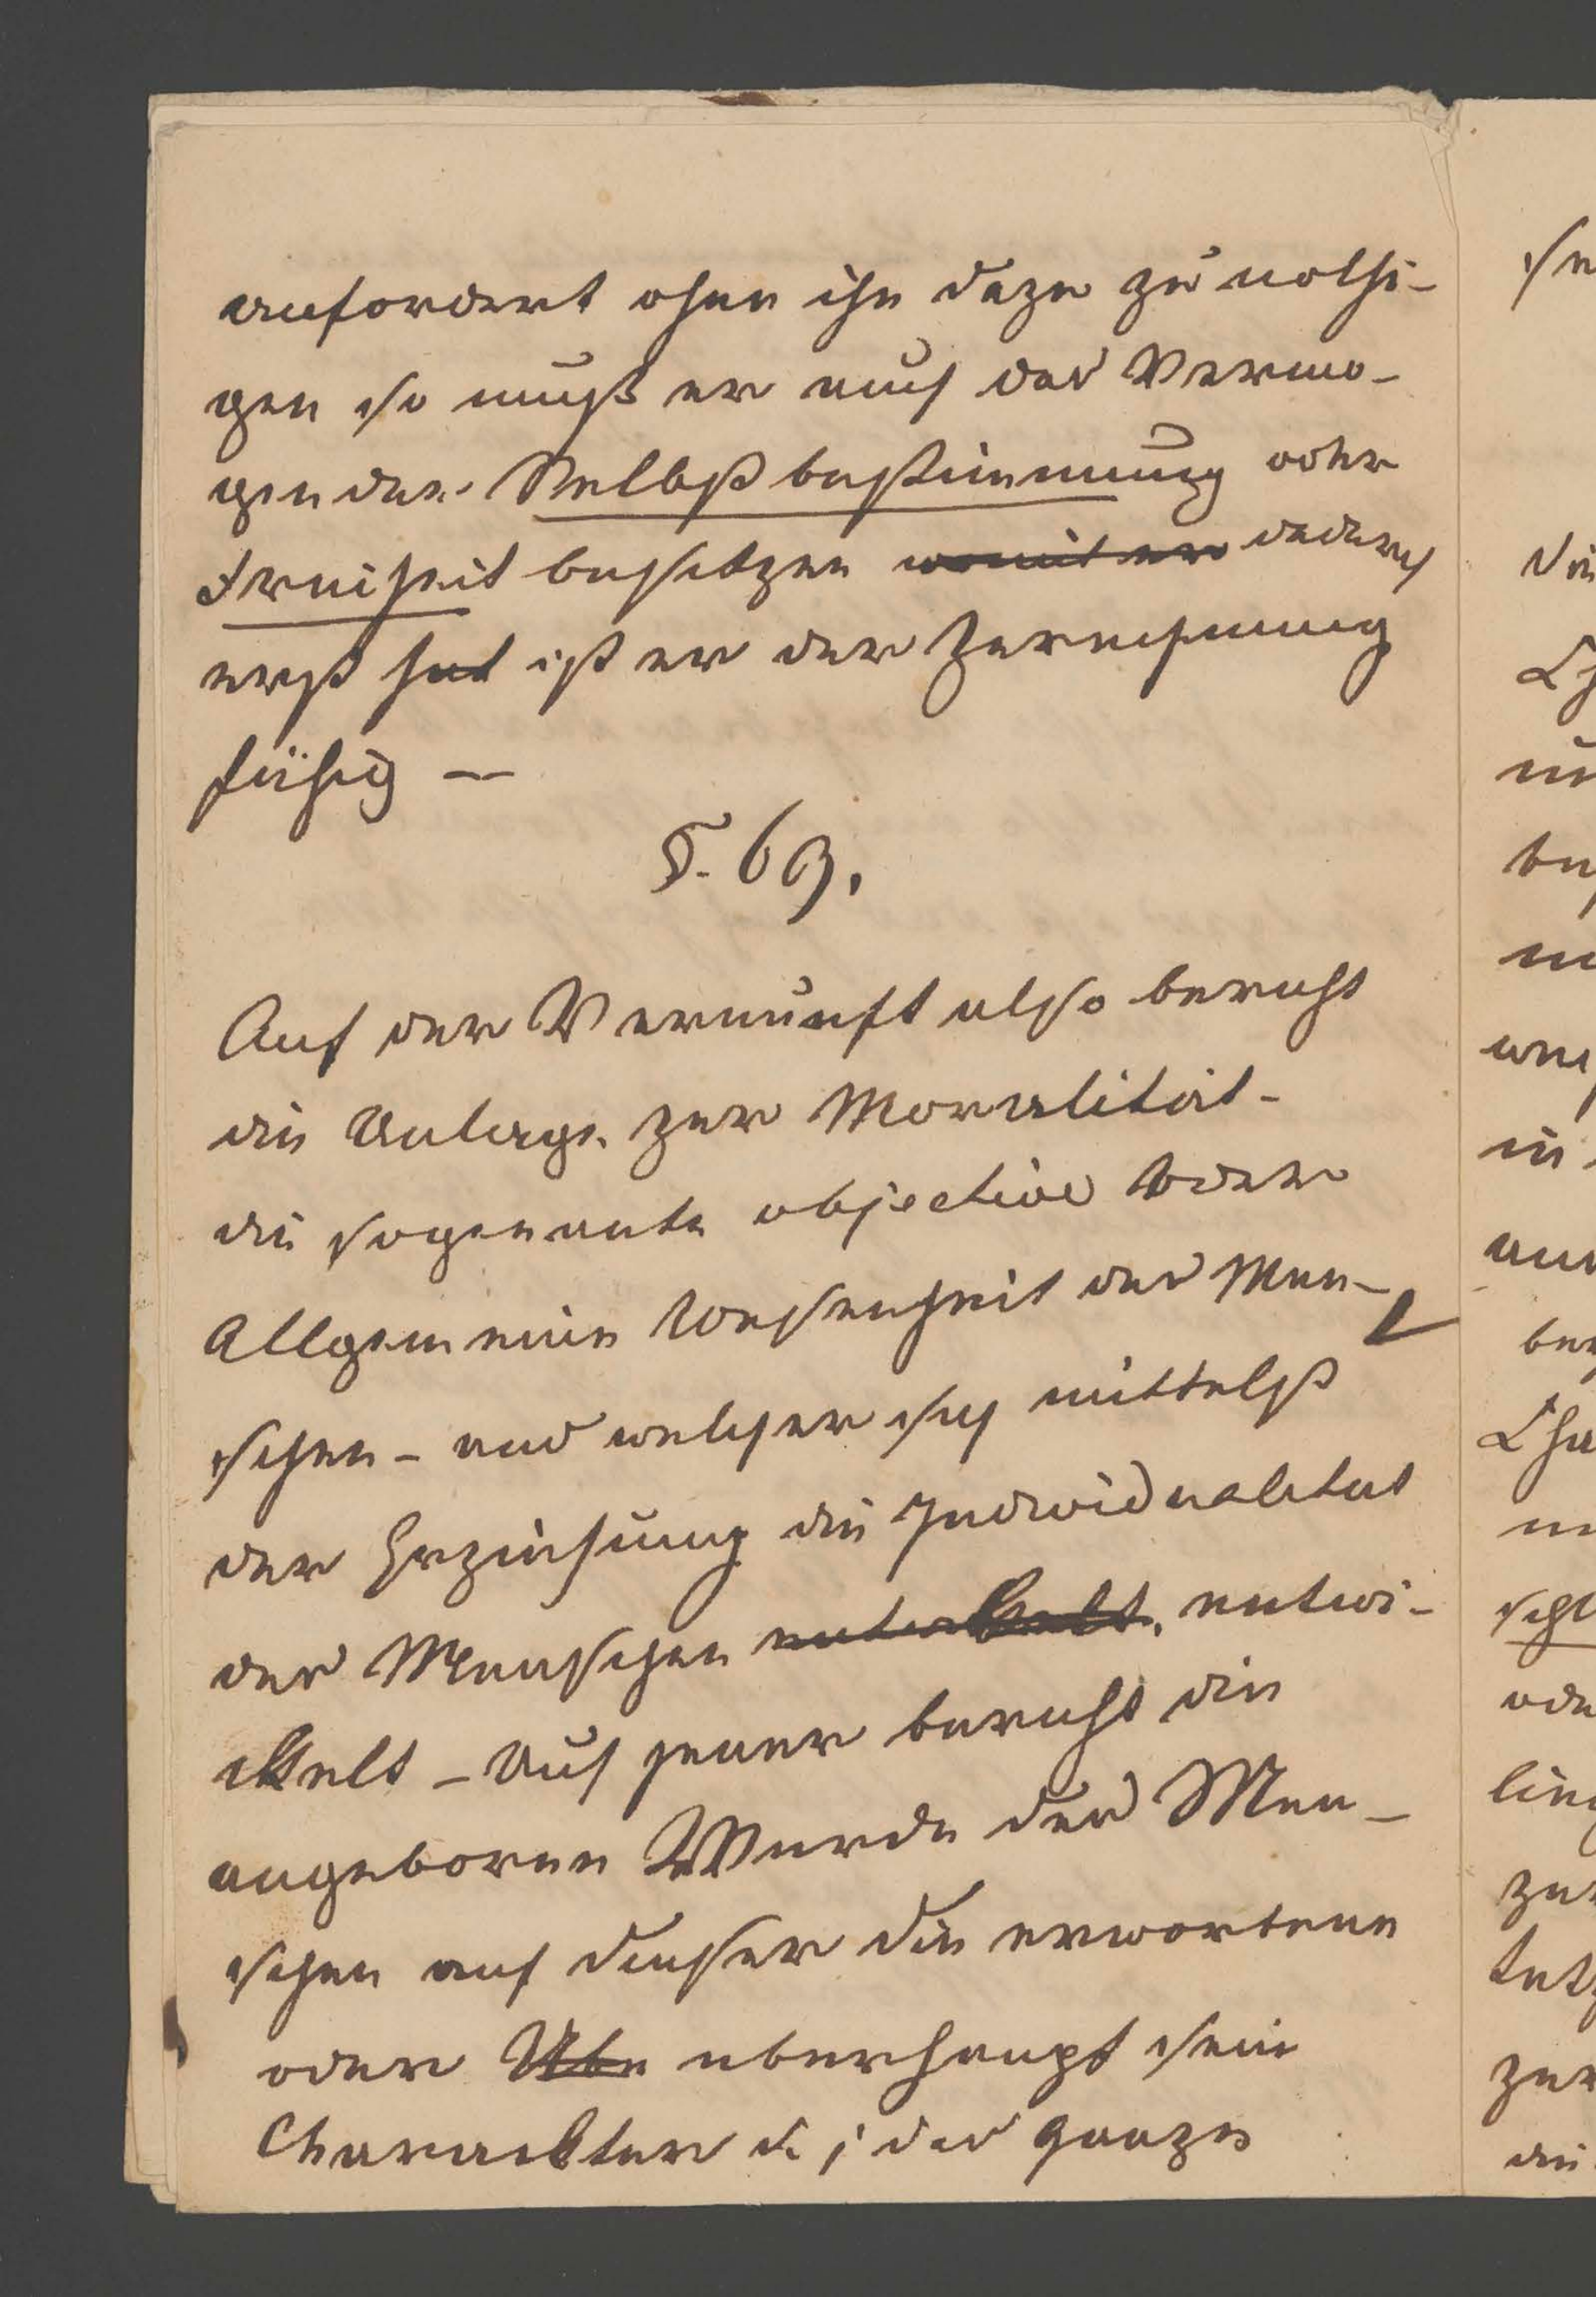 anfordert ohne ihn dazu zu nothi-
gen so muß er auch das Vermo-
gen der Selbstbestimmung oder
Freiheit besitzen womit er dadurch
erst hat ist er der Zurechnung
fähig —
§. 69.
Auf der Vernunft also beruht
die Anlage zur Moralität -
die sogenante objective oder
Allgemeine Wesenheit des Men-
schen - aus welcher sich mittelst
der Erziehung die Individualitat
des Menschen entwikelt, entwi-
kelt - Auf jener beruht die
angeborene Wurde des Men-
schen auf dieser die erworbene
oder Ube uberhaupt sein
Charackter d. j das ganze